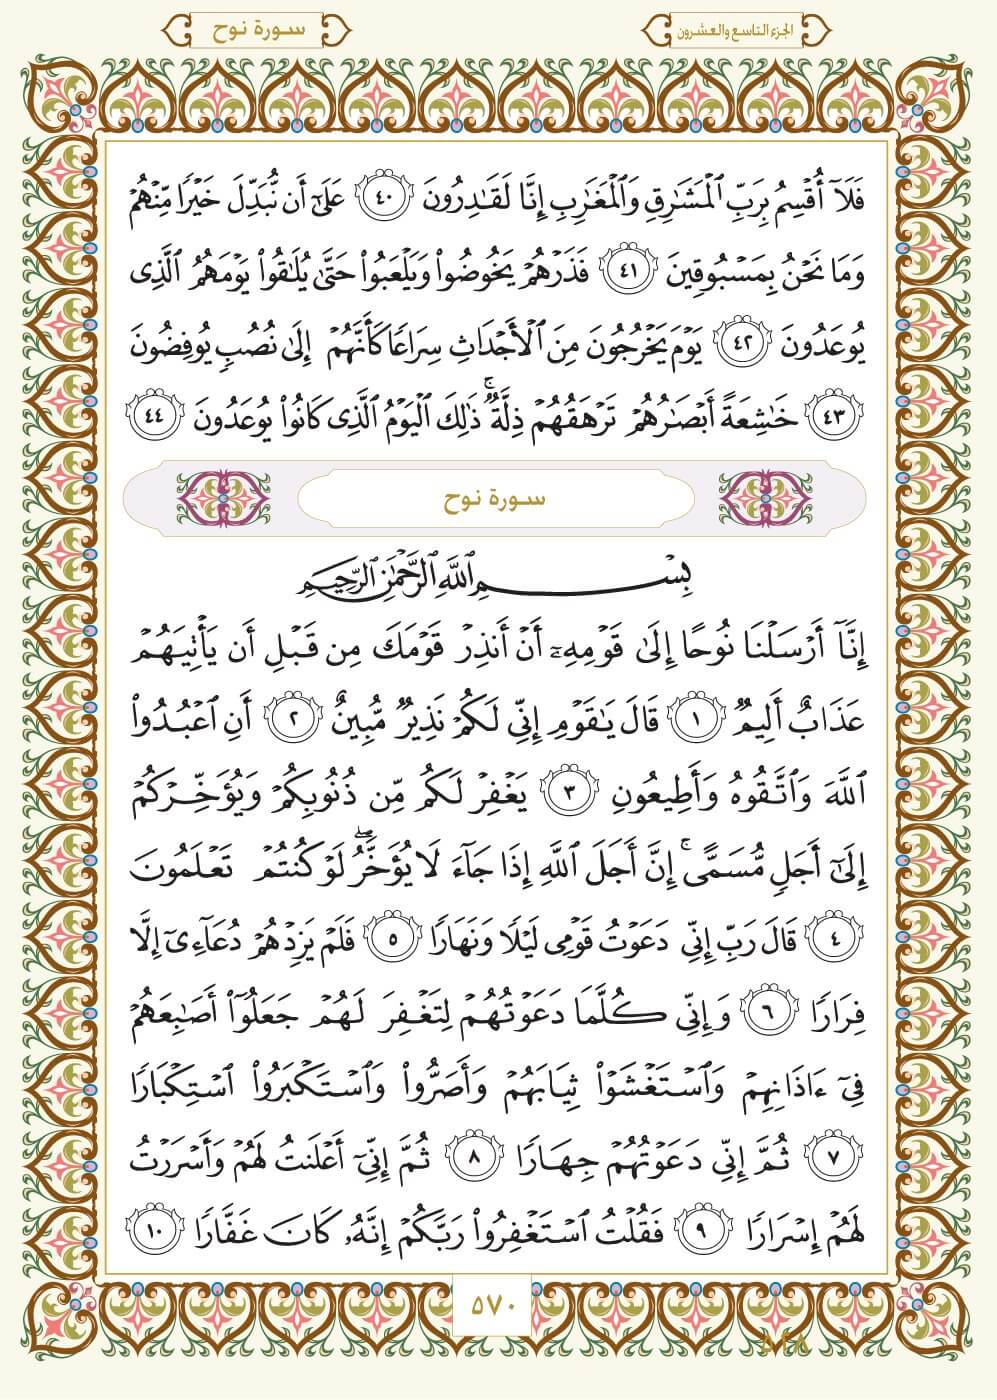 الجزء التاسع والعشرون
سورة نوح
فَلَآ أُقۡسِمُ بِرَبِّ ٱلۡمَشَٰرِقِ وَٱلۡمَغَٰرِبِ إِنَّا لَقَٰدِرُونَ ٤٠ عَلَىٰٓ أَن نُّبَدِّلَ خَيۡرٗا مِّنۡهُمۡ
وَمَا نَحۡنُ بِمَسۡبُوقِينَ ٤١ فَذَرۡهُمۡ يَخُوضُواْ وَيَلۡعَبُواْ حَتَّىٰ يُلَٰقُواْ يَوۡمَهُمُ ٱلَّذِي
يُوعَدُونَ ٤٢ يَوۡمَ يَخۡرُجُونَ مِنَ ٱلۡأَجۡدَاثِ سِرَاعٗا كَأَنَّهُمۡ إِلَىٰ نُصُبٖ يُوفِضُونَ
٤٣ خَٰشِعَةً أَبۡصَٰرُهُمۡ تَرۡهَقُهُمۡ ذِلَّةٞۚ ذَٰلِكَ ٱلۡيَوۡمُ ٱلَّذِي كَانُواْ يُوعَدُونَ ٤٤
سورة نوح
بِسۡمِ ٱللَّهِ ٱلرَّحۡمَٰنِ ٱلرَّحِيمِ
إِنَّآ أَرۡسَلۡنَا نُوحًا إِلَىٰ قَوۡمِهِۦٓ أَنۡ أَنذِرۡ قَوۡمَكَ مِن قَبۡلِ أَن يَأۡتِيَهُمۡ
عَذَابٌ أَلِيمٞ ١ قَالَ يَٰقَوۡمِ إِنِّي لَكُمۡ نَذِيرٞ مُّبِينٌ ٢ أَنِ ٱعۡبُدُواْ
ٱللَّهَ وَٱتَّقُوهُ وَأَطِيعُونِ ٣ يَغۡفِرۡ لَكُم مِّن ذُنُوبِكُمۡ وَيُؤَخِّرۡكُمۡ
إِلَىٰٓ أَجَلٖ مُّسَمًّىۚ إِنَّ أَجَلَ ٱللَّهِ إِذَا جَآءَ لَا يُؤَخَّرُۖ لَوۡ كُنتُمۡ تَعۡلَمُونَ
٤ قَالَ رَبِّ إِنِّي دَعَوۡتُ قَوۡمِي لَيۡلٗا وَنَهَارٗا ٥ فَلَمۡ يَزِدۡهُمۡ دُعَآءِيٓ إِلَّا
فِرَارٗا ٦ وَإِنِّي كُلَّمَا دَعَوۡتُهُمۡ لِتَغۡفِرَ لَهُمۡ جَعَلُوٓاْ أَصَٰبِعَهُمۡ
فِيٓ ءَاذَانِهِمۡ وَٱسۡتَغۡشَوۡاْ ثِيَابَهُمۡ وَأَصَرُّواْ وَٱسۡتَكۡبَرُواْ ٱسۡتِكۡبَارٗا
٧ ثُمَّ إِنِّي دَعَوۡتُهُمۡ جِهَارٗا ٨ ثُمَّ إِنِّيٓ أَعۡلَنتُ لَهُمۡ وَأَسۡرَرۡتُ
لَهُمۡ إِسۡرَارٗا ٩ فَقُلۡتُ ٱسۡتَغۡفِرُواْ رَبَّكُمۡ إِنَّهُۥ كَانَ غَفَّارٗا ١٠
٥٧٠